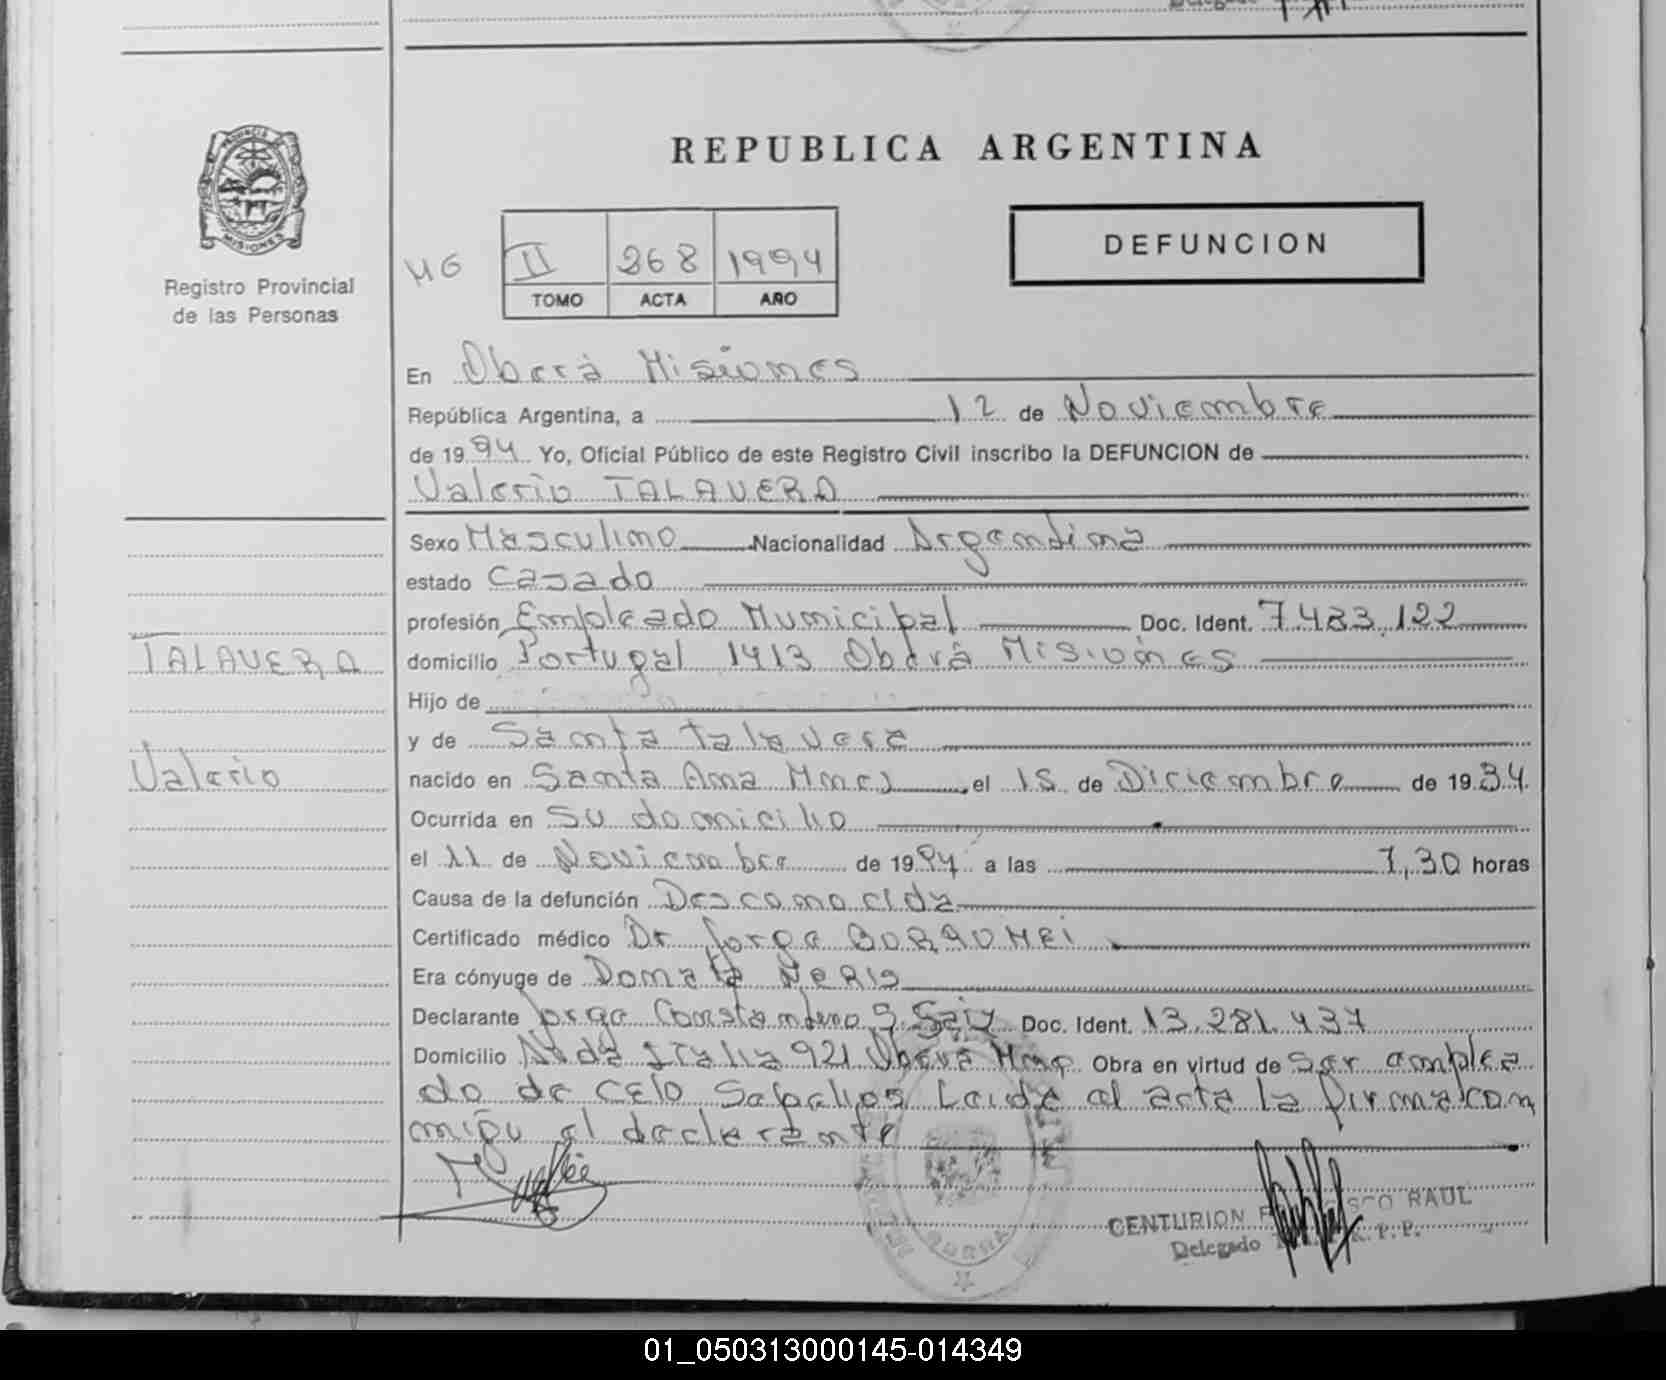 REPUBLICA ARGENTINA
PROVINCIA
MISIONES
Registro Provincial
de las Personas
DEFUNCION
MG II 268 1994
TOMO ACTA AÑO
En Oberá Misiones
República Argentina, a 12 de Noviembre
de 1994 Yo, Oficial Público de este Registro Civil inscribo la DEFUNCION de
Valerio TALAVERA
Sexo Masculino Nacionalidad Argentina
estado Casado
profesión Empleado Municipal Doc. Ident. 7.483.122
domicilio Portugal 1413 Oberá Misiones
Hijo de
y de Santa Talavera
nacido en Santa Ana Mnes el 15 de Diciembre de 1934
Ocurrida en Su domicilio
el 11 de Noviembre de 1994 a las 7,30 horas
Causa de la defunción Desconocida
Certificado médico Dr Jorge BORROMEI
Era cónyuge de Donata NERIS
Declarante Jorge Constantino S. Doc. Ident. 13.281.437
Domicilio Avda Italia 921 Oberá Mnes Obra en virtud de Ser emplea
do de CELO Sepelios Leida el acta la firma con
migo el declarante
TALAVERA
Valerio
CENTURION RAUL
Delegado R.P.P.
OBERA
01_050313000145-014349